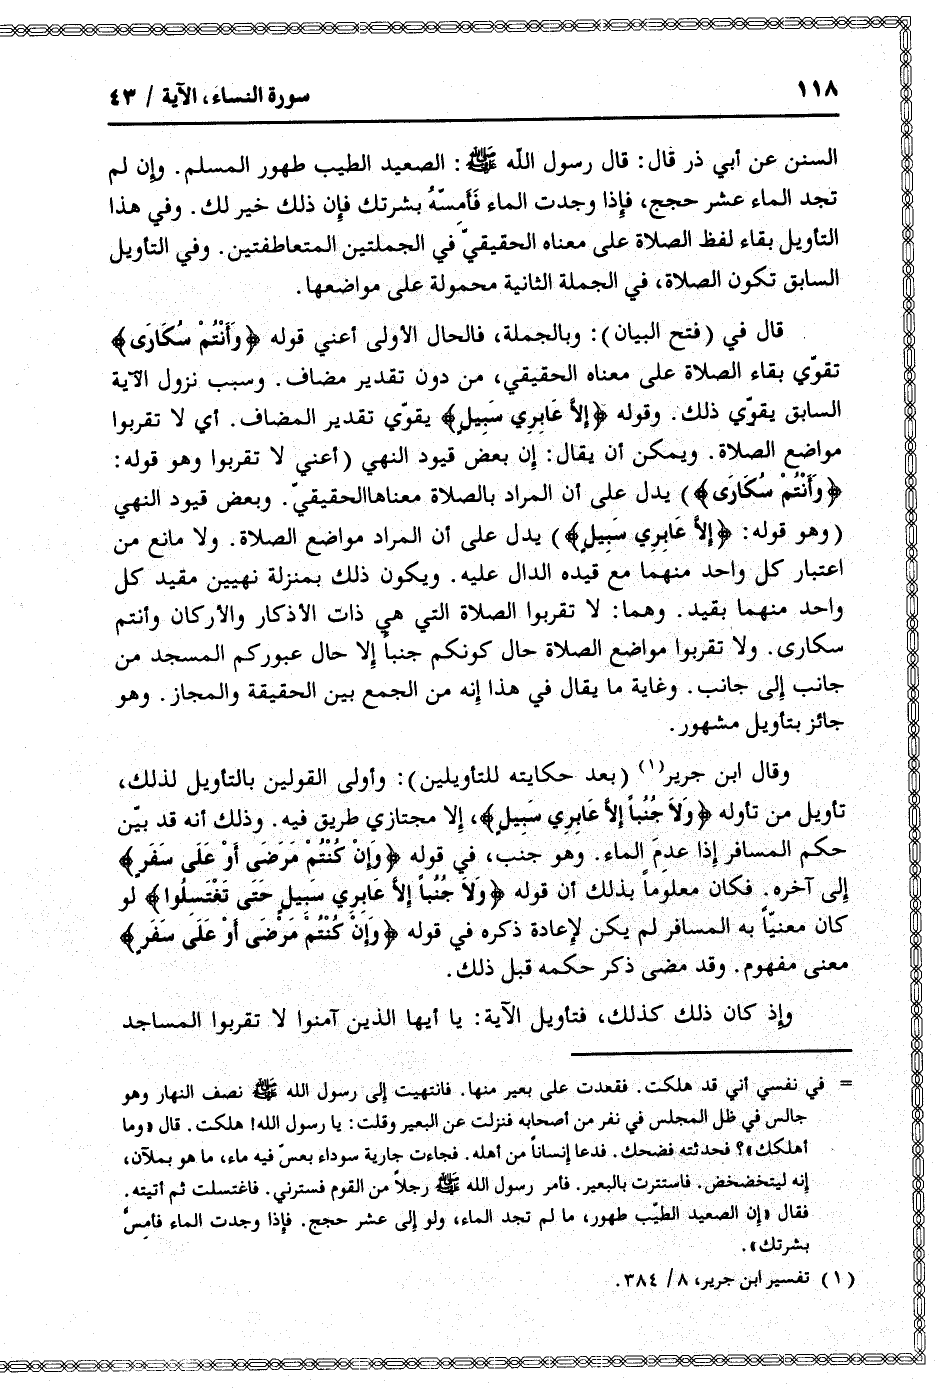 ١١٨
سورة النساء، الآية / ٤٣
السنن عن أبي ذر قال: قال رسول اللّه ﷺ: الصعيد الطيب طهور المسلم. وإن لم
تجد الماء عشر حجج، فإذا وجدت الماء فَأَمِسّهُ بشرتك فإن ذلك خير لك. وفي هذا
التأويل بقاء لفظ الصلاة على معناه الحقيقيّ في الجملتين المتعاطفتين. وفي التأويل
السابق تكون الصلاة، في الجملة الثانية محمولة على مواضعها.
قال في (فتح البيان): وبالجملة، فالحال الأولى أعني قوله ﴿وَأَنْتُمْ سُكَارَى﴾
تقوّي بقاء الصلاة على معناه الحقيقي، من دون تقدير مضاف. وسبب نزول الآية
السابق يقوّي ذلك. وقوله ﴿إلاَّ عَابِرِي سَبِيلٍ﴾ يقوّي تقدير المضاف. أي لا تقربوا
مواضع الصلاة. ويمكن أن يقال: إن بعض قيود النهي (أعني لا تقربوا وهو قوله:
﴿وَأَنْتُمْ سُكَارَى﴾) يدل على أن المراد بالصلاة معناهاالحقيقيّ. وبعض قيود النهي
(وهو قوله: ﴿إلاَّ عَابِرِي سَبِيلٍ﴾) يدل على أن المراد مواضع الصلاة. ولا مانع من
اعتبار كل واحد منهما مع قيده الدال عليه. ويكون ذلك بمنزلة نهيين مقيد كل
واحد منهما بقيد. وهما: لا تقربوا الصلاة التي هي ذات الأذكار والأركان وأنتم
سكارى. ولا تقربوا مواضع الصلاة حال كونكم جنباً إلا حال عبوركم المسجد من
جانب إلى جانب. وغاية ما يقال في هذا إنه من الجمع بين الحقيقة والمجاز. وهو
جائز بتأويل مشهور.
وقال ابن جرير(١) (بعد حكايته للتأويلين): وأولى القولين بالتأويل لذلك،
تأويل من تأوله ﴿وَلاَ جُنُباً إلاَّ عَابِرِي سَبِيلٍ﴾، إلا مجتازي طريق فيه. وذلك أنه قد بيّن
حكم المسافر إذا عدمَ الماء. وهو جنب، في قوله ﴿وَإنْ كُنْتُمْ مَرَضَى أَوْ عَلَى سَفَرٍ﴾
إلى آخره. فكان معلوماً بذلك أن قوله ﴿وَلاَ جُنُباً إلاَّ عَابِرِي سَبِيلٍ حَتَى تَغْتَسِلُوا﴾ لو
كان معنيّاً به المسافر لم يكن لإعادة ذكره في قوله ﴿وَإنْ كُنْتُمْ مَرْضَى أَوْ عَلَى سَفَرٍ﴾
معنى مفهوم. وقد مضى ذكر حكمه قبل ذلك.
وإذ كان ذلك كذلك، فتأويل الآية: يا أيها الذين آمنوا لا تقربوا المساجد
= في نفسي أني قد هلكت. فقعدت على بعير منها. فانتهيت إلى رسول الله ﷺ نصف النهار وهو
جالس في ظل المجلس في نفر من أصحابه فنزلت عن البعير وقلت: يا رسول الله! هلكت. قال «وما
أهلكك»؟ فحدثته فضحك. فدعا إنساناً من أهله. فجاءت جارية سوداء بعسّ فيه ماء، ما هو بملآن،
إنه ليتخضخض. فاستترت بالبعير. فأمر رسول الله ﷺ رجلاً من القوم فسترني. فاغتسلت ثم أتيته.
فقال «إن الصعيد الطيّب طهور، ما لم تجد الماء، ولو إلى عشر حجج. فإذا وجدت الماء فأمِسَّ
بشرتك».
(١) تفسير ابن جرير، ٨/ ٣٨٤.